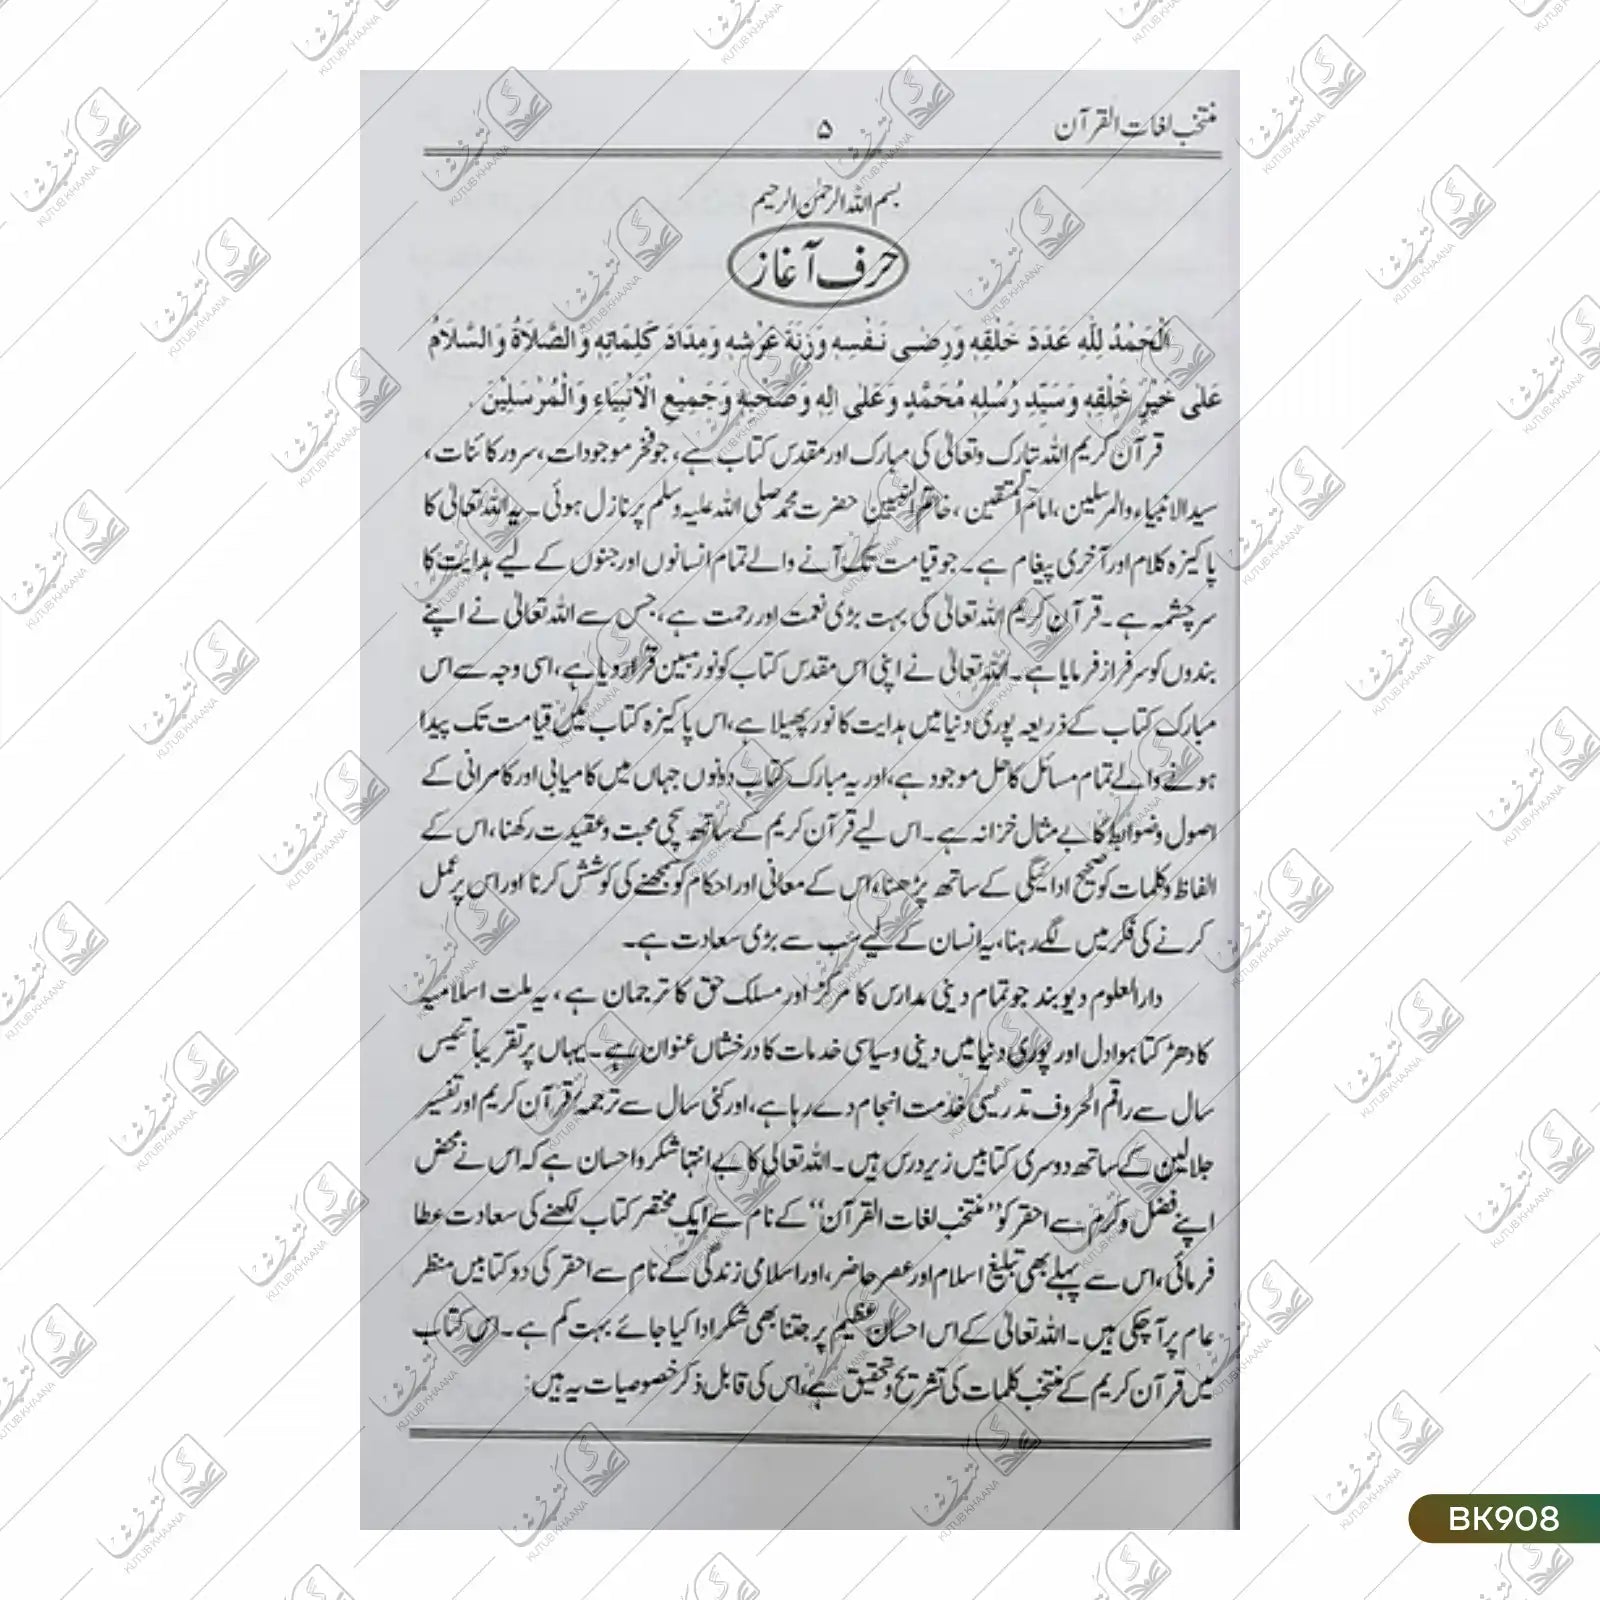 منتخب لغات القرآن
۵
بسم اللہ الرحمٰن الرحیم
حرف آغاز
اَلْحَمْدُ لِلّٰهِ عَدَدَ خَلْقِهٖ وَرِضٰى نَفْسِهٖ وَزِنَةَ عَرْشِهٖ وَمِدَادَ كَلِمَاتِهٖ وَالصَّلَاةُ وَالسَّلَامُ
عَلٰى خَيْرِ خَلْقِهٖ وَسَيِّدِ رُسُلِهٖ مُحَمَّدٍ وَعَلٰى اٰلِهٖ وَصَحْبِهٖ وَجَمِيْعِ الْاَنْبِيَاءِ وَالْمُرْسَلِيْنَ.
قرآن کریم اللہ تبارک وتعالیٰ کی مبارک اور مقدس کتاب ہے، جو فخر موجودات، سرور کائنات،
سید الانبیاء والمرسلین، امام المتقین، خاتم النبیین حضرت محمد صلی اللہ علیہ وسلم پر نازل ہوئی۔ یہ اللہ تعالیٰ کا
پاکیزہ کلام اور آخری پیغام ہے۔ جو قیامت تک آنے والے تمام انسانوں اور جنوں کے لیے ہدایت کا
سرچشمہ ہے۔ قرآن کریم اللہ تعالیٰ کی بہت بڑی نعمت اور رحمت ہے، جس سے اللہ تعالیٰ نے اپنے
بندوں کو سرفراز فرمایا ہے۔ اللہ تعالیٰ نے اپنی اس مقدس کتاب کو نور مبین قرار دیا ہے، اسی وجہ سے اس
مبارک کتاب کے ذریعہ پوری دنیا میں ہدایت کا نور پھیلا ہے، اس پاکیزہ کتاب میں قیامت تک پیدا
ہونے والے تمام مسائل کا حل موجود ہے، اور یہ مبارک کتاب دونوں جہاں میں کامیابی اور کامرانی کے
اصول وضوابط کا بے مثال خزانہ ہے۔ اس لیے قرآن کریم کے ساتھ سچی محبت وعقیدت رکھنا، اس کے
الفاظ وکلمات کو صحیح ادائیگی کے ساتھ پڑھنا، اس کے معانی اور احکام کو سمجھنے کی کوشش کرنا اور اس پر عمل
کرنے کی فکر میں لگے رہنا، یہ انسان کے لیے سب سے بڑی سعادت ہے۔
دارالعلوم دیوبند جو تمام دینی مدارس کا مرکز اور مسلک حق کا ترجمان ہے، یہ ملت اسلامیہ
کا دھڑکتا ہوا دل اور پوری دنیا میں دینی وسیاسی خدمات کا درخشاں عنوان ہے۔ یہاں پر تقریباً تیئس
سال سے راقم الحروف تدریسی خدمت انجام دے رہا ہے، اور کئی سال سے ترجمہ قرآن کریم اور تفسیر
جلالین کے ساتھ دوسری کتابیں زیر درس ہیں۔ اللہ تعالیٰ کا بے انتہا شکر واحسان ہے کہ اس نے محض
اپنے فضل وکرم سے احقر کو "منتخب لغات القرآن" کے نام سے ایک مختصر کتاب لکھنے کی سعادت عطا
فرمائی، اس سے پہلے بھی تبلیغ اسلام اور عصر حاضر، اور اسلامی زندگی کے نام سے احقر کی دو کتابیں منظر
عام پر آچکی ہیں۔ اللہ تعالیٰ کے اس احسان عظیم پر جتنا بھی شکر ادا کیا جائے بہت کم ہے۔ اس کتاب
میں قرآن کریم کے منتخب کلمات کی تشریح وتحقیق ہے، اس کی قابل ذکر خصوصیات یہ ہیں:
BK908
کتب خانہ
KUTUB KHAANA